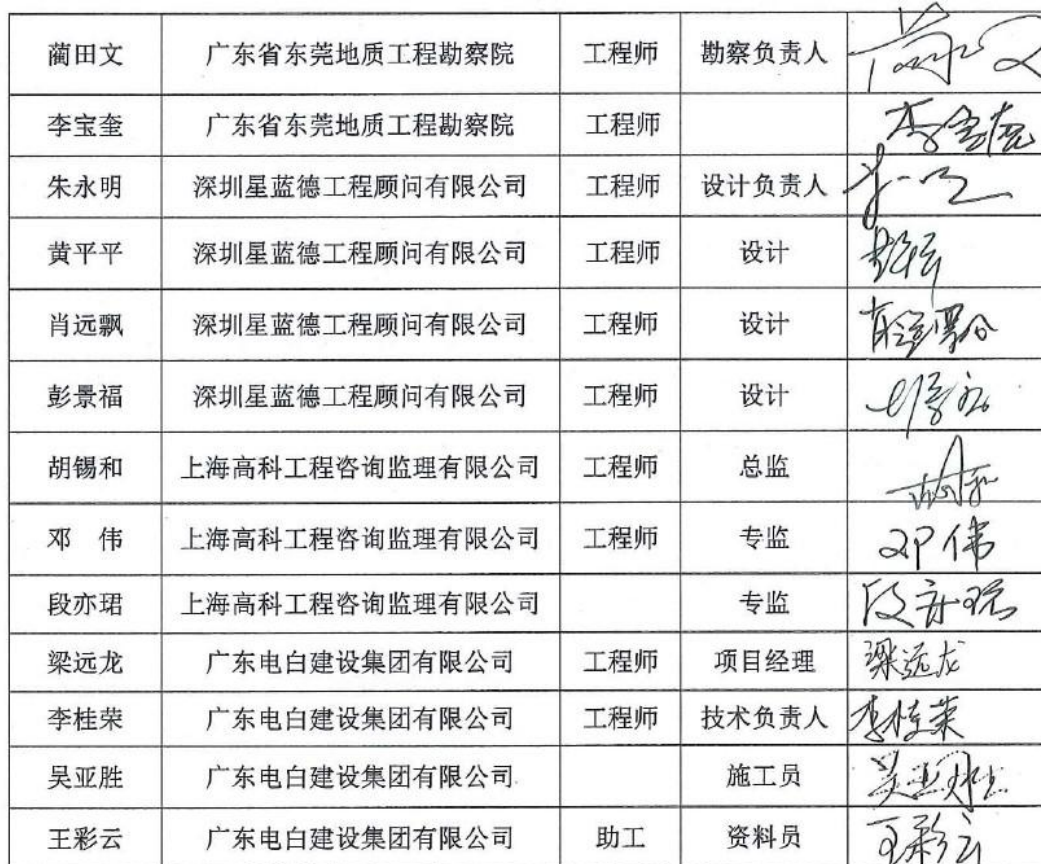 蔺田文 广东省东莞地质工程勘察院 工程师 勘察负责人
李宝奎 广东省东莞地质工程勘察院 工程师
朱永明 深圳星蓝德工程顾问有限公司 工程师 设计负责人
黄平平 深圳星蓝德工程顾问有限公司 工程师 设计
肖远飘 深圳星蓝德工程顾问有限公司 工程师 设计
彭景福 深圳星蓝德工程顾问有限公司 工程师 设计
胡锡和 上海高科工程咨询监理有限公司 工程师 总监
邓 伟 上海高科工程咨询监理有限公司 工程师 专监 邓伟
段亦珺 上海高科工程咨询监理有限公司 专监
梁远龙 广东电白建设集团有限公司 工程师 项目经理 梁远龙
李桂荣 广东电白建设集团有限公司 工程师 技术负责人 李桂荣
吴亚胜 广东电白建设集团有限公司 施工员
王彩云 广东电白建设集团有限公司 助工 资料员 王彩云